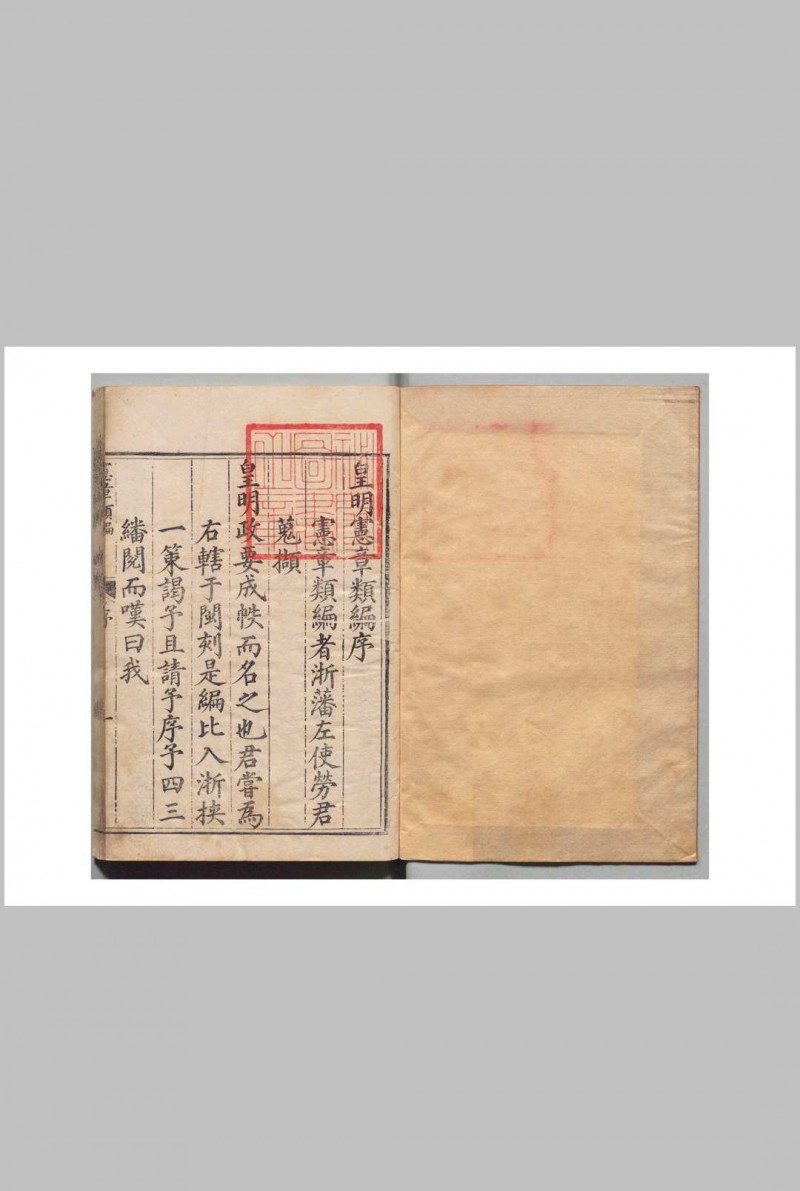 皇明憲章類編序
憲章類編者浙藩左使勞君
蒐擷
皇明政要成帙而名之也君嘗為
右轄于閩刻是編比入浙挾
一策謁予且請予序予四三
繙閱而嘆曰我
章類編
序
一